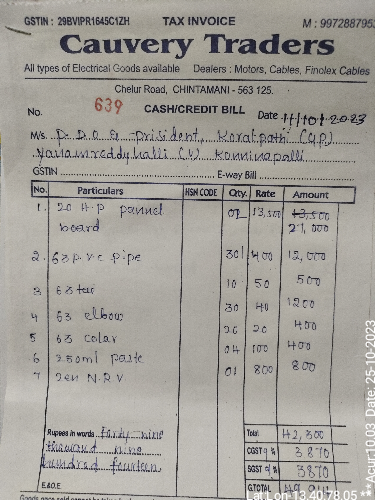 GSTIN : 29BVIPR1645C1ZH TAX INVOICE M : 9972887953
Cauvery Traders
All types of Electrical Goods available Dealers : Motors, Cables, Finolex Cables
Chelur Road, CHINTAMANI - 563 125.
No. 639 CASH/CREDIT BILL Date 11/10/2023
M/s P.D.O & President, Koratpathi (G.P.)
(V) Konninapalli
GSTIN E-way Bill
No. Particulars HSN CODE Qty. Rate Amount
1. 20 H.P pannel 13,500 13,500
board 27,000
2. 63 p.v.c pipe 30 400 12,000
3 63 10 50 500
4 63 elbow 30 40 1200
5 63 colar 20 20 400
6 250ml paste 04 100 400
7 N.R.V 01 800 800
Rupees in words Forty nine Total 42,300
thousand nine CGST 9 % 3870
hundred fourteen SGST 9 % 3870
E.&O.E. GTOTAL
Lat Lon 13.40 78.05 ** Acur 10.03 Date: 25-10-2023